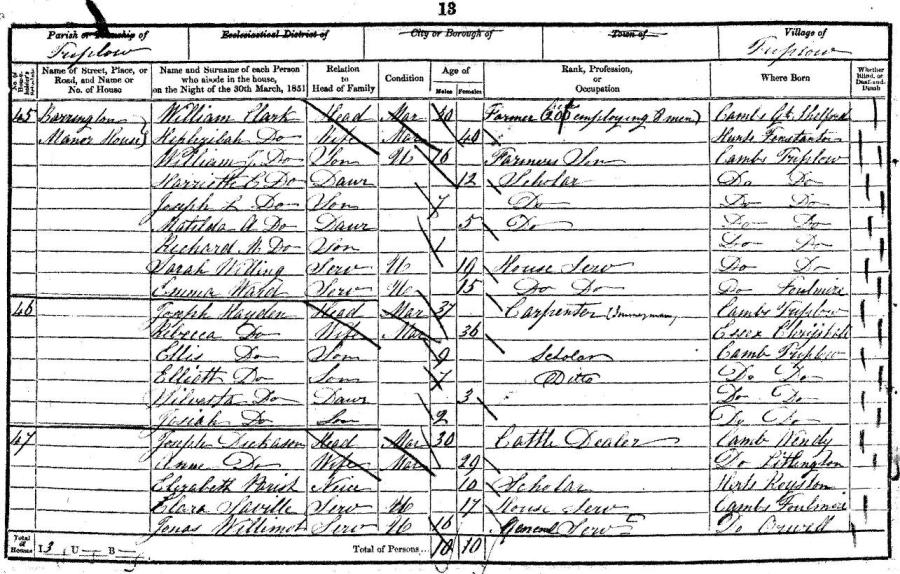 13
Parish or Township of Ecclesiastical District of City or Borough of Town of Village of
Triplow Triplow
No. of House- holder's Schedule Name of Street, Place, or Road, and Name or No. of House Name and Surname of each Person who abode in the house, on the Night of the 30th March, 1851 Relation to Head of Family Condition Age of Males Females Rank, Profession, or Occupation Where Born Whether Blind, or Deaf-and-Dumb
45 Barrington William Clark Head Mar 40 Farmer employing 8 men) Cambs Gt Shelford
Manor House Hephzibah Do Wife Mar 40 Hunts Fenstanton
William J. Do Son U 16 Farmers Son Cambs Triplow
Harriette E Do Daur 12 Scholar Do Do
Joseph L Do Son 7 Do Do Do
Matilda A Do Daur 5 Do Do Do
Richard M Do Son 1 Do Do
Sarah Willing Serv U 19 House Serv Do Do
Emma Ward Serv U 15 Do Do Do Foulmire
46 Joseph Hayden Head Mar 37 Carpenter (Journeyman) Cambs Triplow
Rebecca Do Wife Mar 36 Essex
Ellis Do Son 9 Scholar Camb Triplow
Elliott Do Son 7 Ditto Do Do
Do Daur 3 Do Do
Josiah Do Son 2 Do Do
47 Joseph Dickason Head Mar 30 Cattle Dealer Camb Wendy
Anne Do Wife Mar 29 Do Litlington
Elizabeth Parish Niece 10 Scholar Herts Royston
Clara Saville Serv U 17 House Serv Cambs Foulmire
Jonas Willimot Serv U 16 General Serv Do Orwell
Total of Houses I 3 U B Total of Persons... 10 10